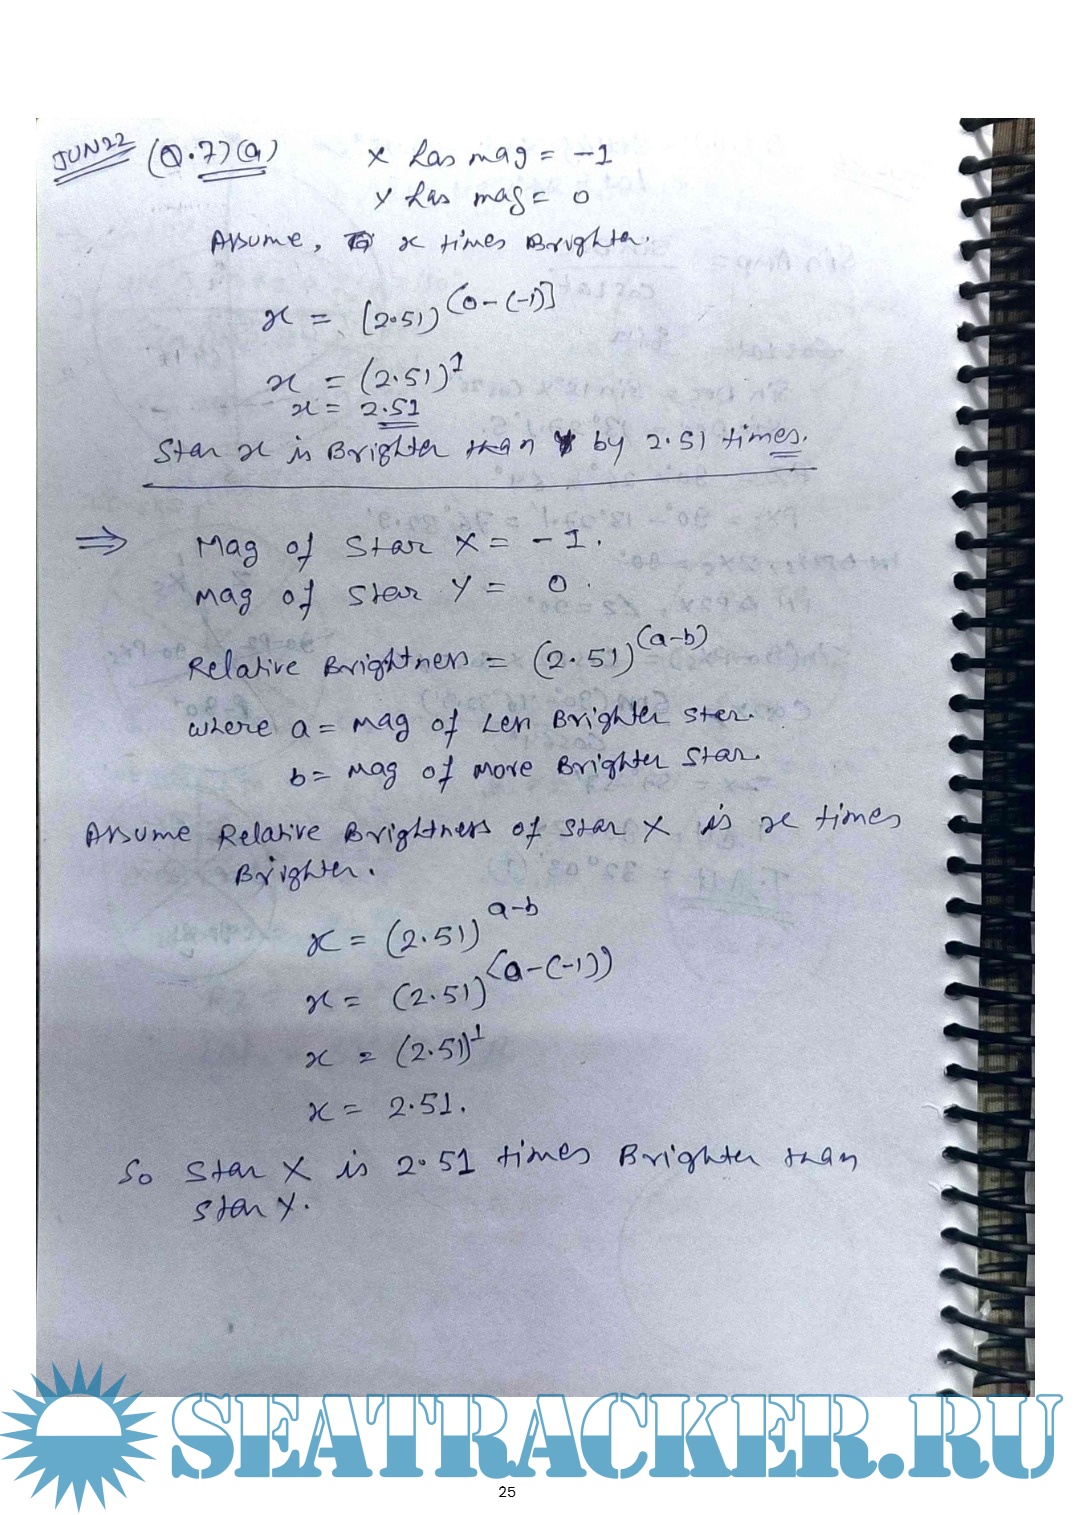 JUN22 (Q.7)(a) X has mag = -1
Y has mag = 0
Assume, x times Brighter.
x = (2.51)^(0-(-1)]
x = (2.51)^1
x = 2.51
Star x is Brighter than Y by 2.51 times.
⇒ Mag of Star X = -1.
Mag of Star Y = 0.
Relative Brightness = (2.51)^(a-b)
where a = Mag of Less Brighter Star.
b = Mag of More Brighter Star.
Assume Relative Brightness of Star X is x times
Brighter.
x = (2.51)^a-b
x = (2.51)^(0-(-1))
x = (2.51)^1
x = 2.51.
So Star X is 2.51 times Brighter than
Star Y.
SEATRACKER.RU
25